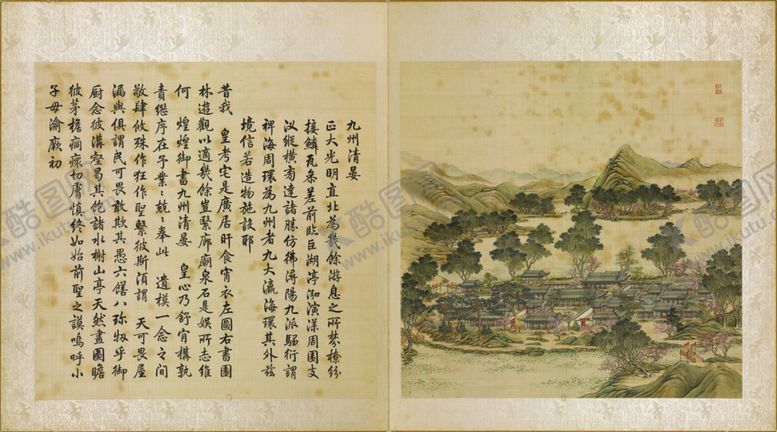 九州清晏
正大光明直北為幾餘游息之所棼橑紛
接鱗瓦參差前臨巨湖渟泓演漾周圍支
汊縱橫旁達諸勝仿彿潯陽九派騶衍謂
裨海周環為九州者九大瀛海環其外茲
境信若造物施設耶
昔我 皇考宅是廣居旰食宵衣左圖右書園
林遊觀以適幾餘豈繄廊廟泉石是娛所志維
何 煌煌御書九州清晏 皇心乃舒肯構孰
責繼序在予業〻兢〻奉此 遺模一念之間
敬肆攸殊作狂作聖繫彼斯須謂 天可畏屋
漏與俱謂民可畏敢欺其愚六饍八珍牣乎御
廚念彼溝壑曷其飽諸水榭山亭天然畫圖瞻
彼茅檐痌瘝切膚慎終如始前聖之謨嗚呼小
子毋渝厥初